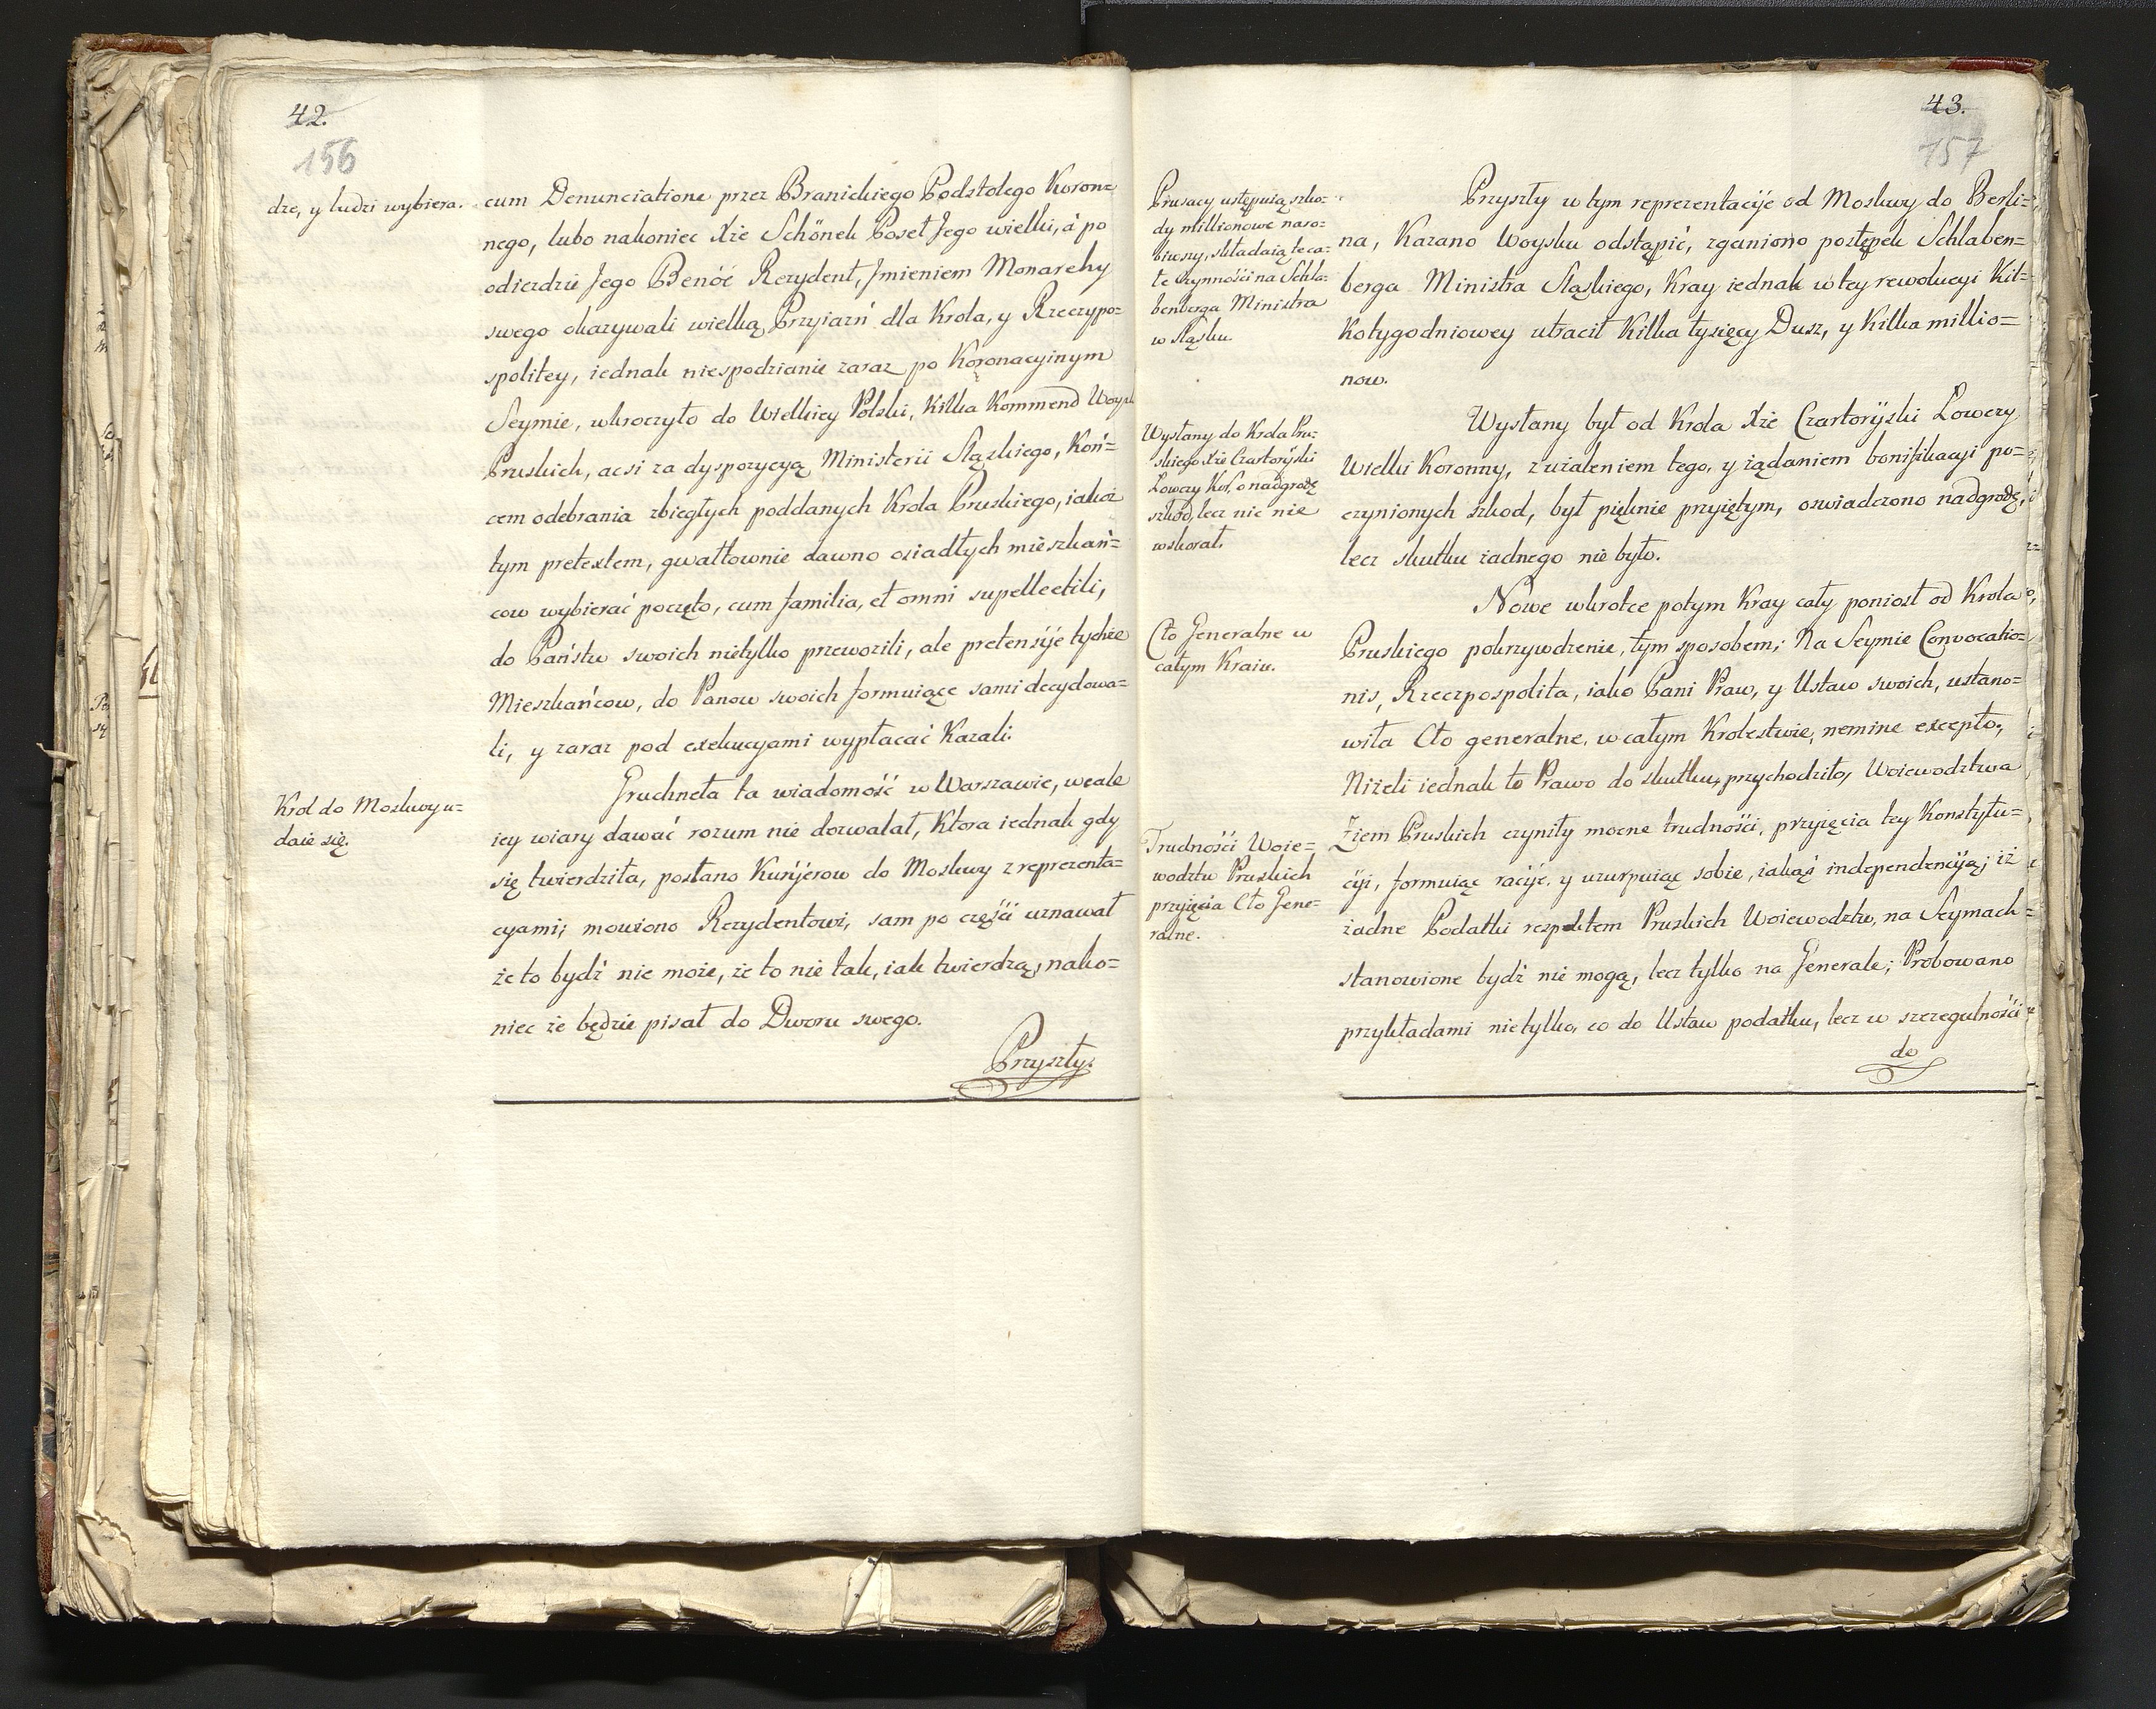 42.
156
dze, y ludzi wybiera.
cum Denunciatione przez Branickiego Podstolego Koron=
nego, lubo nakoniec Xże Schönek Poseł Jego wielki, á po
odiezdzie Jego Benóć Rezydent, Jmieniem Monarchy
swego okazywali wielką Przyiazń dla Krola, y Rzeczypo=
spolitey, iednak niespodzianie zaraz po Koronacyinym
Seymie, wkroczyło do Wielkiey Polski, Kilka Kommend Woysk
Pruskich, acsi za dyspozycyą Ministerii Sląskiego, Koń=
cem odebrania zbiegłych poddanych Krola Pruskiego, iakoż
tym pretextem, gwałtownie dawno osiadłych mieszkań=
cow wybierać poczęto, cum familia, et omni supellectili,
do Państw swoich nietylko przewozili, ale pretensÿe tychże
Mieszkańcow, do Panow swoich formuiące sami decydowa=
li, y zaraz pod exekucyami wypłacać Kazali.
Gruchneła ta wiadomość w Warszawie, wcale
iey wiary dawać rozum nie dozwalał, Ktora iednak gdy
się twierdziła, posłano Kurÿerow do Moskwy z reprezenta=
cyami; mowiono Rezydentowi, sam po części uznawał
że to bydź nie może, że to nie tak, iak twierdzą, nako=
niec że będzie pisał do Dworu swego.
Krol do Moskwy u=
daie się.
Przyszły.
43.
157
Prusacy ustępuią szko=
dy millionowe naro=
biwszy, składaią te ca=
łe czynności na Schla=
benberga Ministra
w Sląsku.
Przyszły w tym reprezentacÿe od Moskwy do Berli=
na, Kazano Woysku odstąpić, zganiono postępek Schlaben=
berga Ministra Sląskiego, Kray iednak w tey rewolucyi Kil=
kotygodniowey utracił Kilka tysięcy Dusz, y Kilka millio=
now.
Wysłany do Krola Pru=
skiego Xże Czartorÿski
Lowczy Kor. o nadgrodę
szkod, lecz nic nie
wskorał.
Wysłany był od Krola Xże Czartorÿski Lowczy
Wielki Koronny, z użaleniem tego, y żądaniem bonifikacyi po=
czynionych szkod, był pięknie przyiętym, oswiadczono nadgrodę,
lecz skutku żadnego nie było.
Cło Generalne w
całym Kraiu.
Nowe wkrotce potym Kray cały poniosł od Krola
Pruskiego pokrzywdzenie, tym sposobem; Na Seymie Convocatio=
nis, Rzeczpospolita, iako Pani Praw, y Ustaw swoich, ustano=
wiła Cło generalne, w całym Krolestwie, nemine excepto,
Niżeli iednak to Prawo do skutku, przychodziło, Woiewodztwa
Ziem Pruskich czyniły mocne trudności, przyięcia tey Konstytu=
cÿi, formuiąc racÿe, y uzurpuiąc sobie, iakąś independencÿą; iż
żadne Podatki respektem Pruskich Woiewodztw, na Seymach=
stanowione bydź nie mogą, lecz tylko na Generale; Probowano
przykładami nietylko, co do Ustaw podatku, lecz w szczegulności
Trudności Woie=
wodztw Pruskich
przyięcia Cło Gene=
ralne.
do